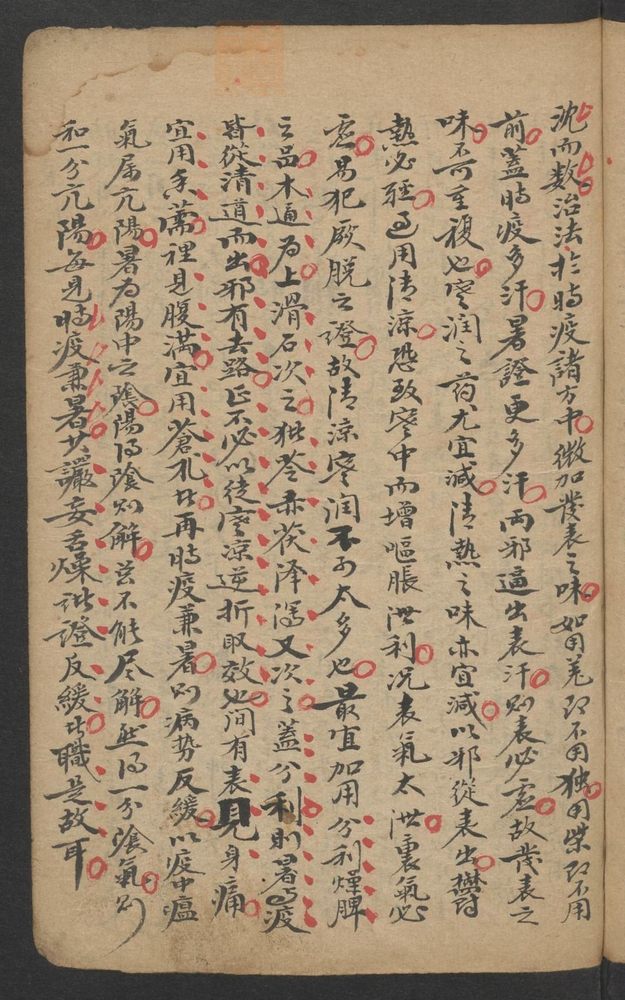 沈而数治法於時疫諸方中微加發表之味如用羌即不用独用柴即不用
前蓋時疫多汗暑證更多汗両邪逼出表汗則表必虛故發表之
味不可重複也寒润之药尤宜减清熱之味亦宜减以邪從表出欝
熱必輕过用清凉恐致寒中而增嘔脹泄利况表氣太泄裏氣必
虛易犯厥脱之證故清凉寒润不可太多也最宜加用分利燥脾
之品木通为上滑石次之猪苓赤茯泽瀉又次之蓋分利則暑与疫
皆從清道而出邪有去路正不必以徒寒凉逆折取效也间有表見身痛
宜用香薷裡見腹满宜用蒼术再時疫兼暑則病势反緩以疫中瘟
氣属亢陽暑为陽中之陰陽得陰則解兹不能尽解然得一分陰氣則
和一分亢陽每見時疫兼暑其讝妄舌燥諸證反緩職是故耳